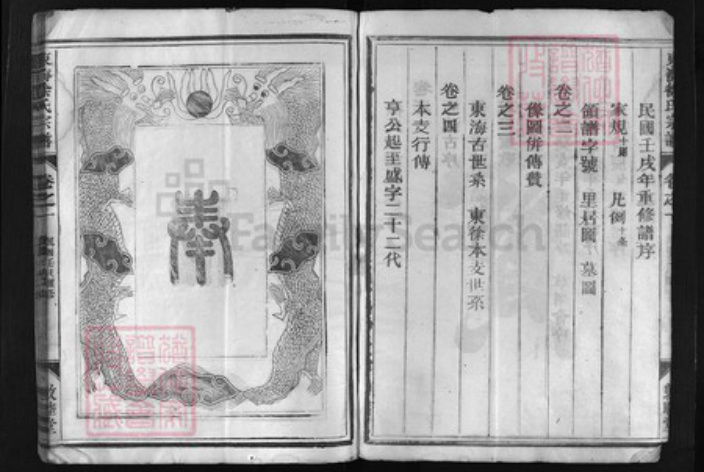 民國壬戌年重修譜序
家規十則 凡例十條
領譜字號 里居圖 墓圖
卷之二
像圖併傳贊
卷之三
東海古世系 東徐本支世系
卷之四
本支行傳
亨公起至盛字二十二代
奉
東海徐氏宗譜 卷之一
敦睦堂
FamilySearch